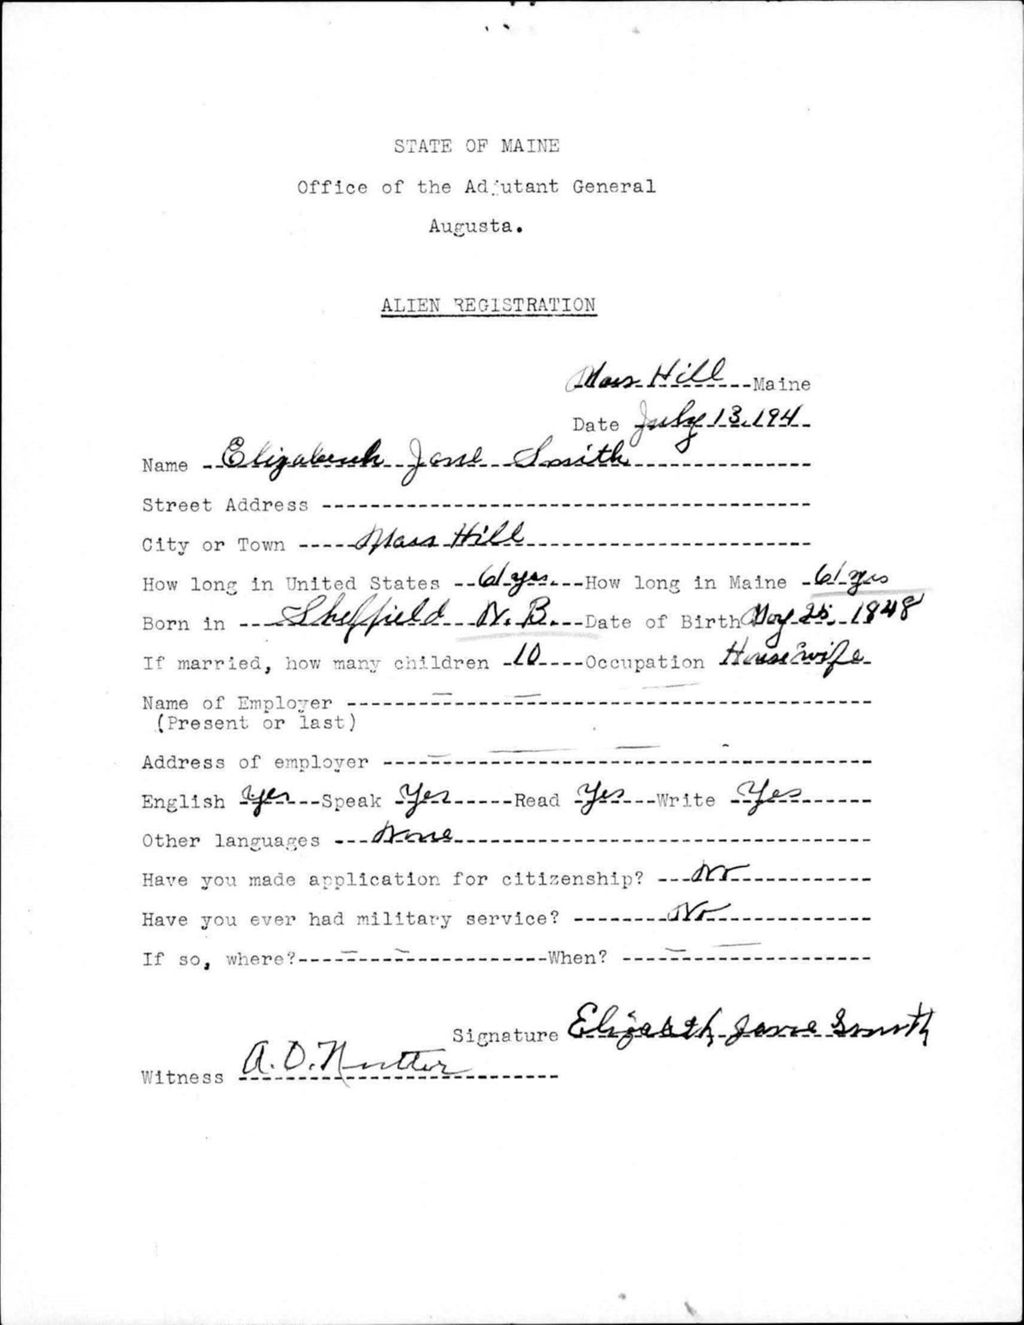 STATE OF MAINE
Office of the Adjutant General
Augusta.
ALIEN REGISTRATION
Mars Hill Maine
Date July 13, 194
Name Elizabeth Jane Smith
Street Address
City or Town Mars Hill
How long in United States 61 yrs. How long in Maine 61 yrs
Born in Sheffield N.B. Date of Birth 25, 1848
If married, how many children 10 Occupation Housewife
Name of Employer
(Present or last)
Address of employer
English Yes Speak Yes Read Yes Write Yes
Other languages None
Have you made application for citizenship? No
Have you ever had military service? No
If so, where? When?
Signature Elizabeth Jane Smith
Witness A. D. Nutter